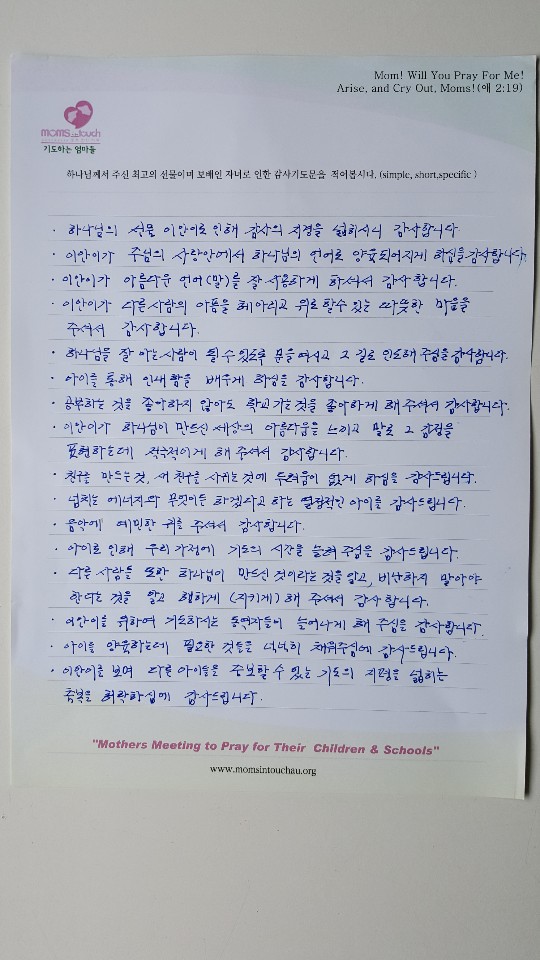 Mom! Will You Pray For Me!
Arise, and Cry Out, Moms!(애 2:19)
moms in touch
기도하는 엄마들
하나님께서 주신 최고의 선물이며 보배인 자녀로 인한 감사기도문을 적어봅시다. (simple, short,specific )
· 하나님의 선물 이안이로 인해 감사의 지경을 넓히시니 감사합니다
· 이안이가 주님의 사랑안에서 하나님의 언어로 양육되어지게 하심을 감사합니다.
· 이안이가 아름다운 언어(말)를 잘 사용하게 하셔서 감사합니다.
· 이안이가 다른사람의 아픔을 헤아리고 위로할수 있는 따뜻한 마음을
주셔서 감사합니다.
· 하나님을 잘 아는사람이 될 수 있도록 문을 여시고 그 길로 인도해 주심을 감사합니다.
· 아이를 통해 인내함을 배우게 하심을 감사합니다.
· 공부하는 것을 좋아하지 않아도 학교가는것을 좋아하게 해주셔서 감사합니다.
· 이안이가 하나님이 만드신 세상의 아름다움을 느끼고 말로 그 감정을
표현하는데 적극적이게 해 주셔서 감사합니다.
· 친구를 만드는것, 새 친구를 사귀는것에 두려움이 없게 하심을 감사드립니다.
· 넘치는 에너지와 무엇이든 하겠다고 하는 열정적인 아이를 감사드립니다.
· 음악에 예민한 귀를 주셔서 감사합니다.
· 아이로 인해 우리 가정에 기도의 시간을 늘려 주심을 감사드립니다.
· 다른 사람들 또한 하나님이 만드신 것이라는 것을 알고, 비난하지 말아야
한다는 것을 알고 행하게 (지키게) 해 주셔서 감사합니다.
· 이안이를 위하여 기도하시는 동역자들이 늘어나게 해 주심을 감사합니다.
· 아이를 양육하는데 필요한 것들을 넉넉히 채워주심에 감사드립니다.
· 이안이를 보며 다른 아이들을 중보할 수 있는 기도의 지평을 넓히는
축복을 허락하심에 감사드립니다.
"Mothers Meeting to Pray for Their Children & Schools"
www.momsintouchau.org